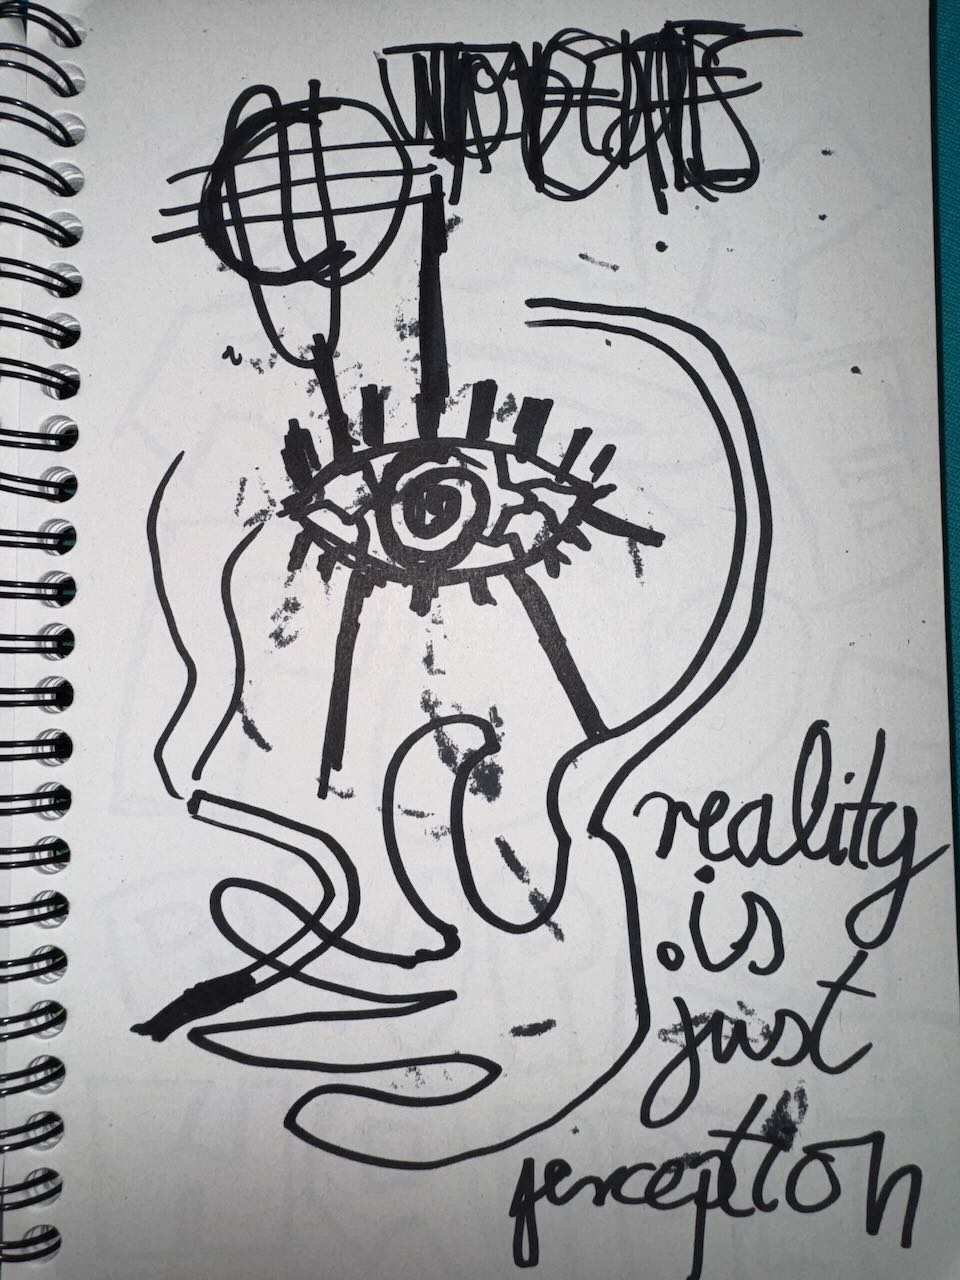 reality
is
just
perception